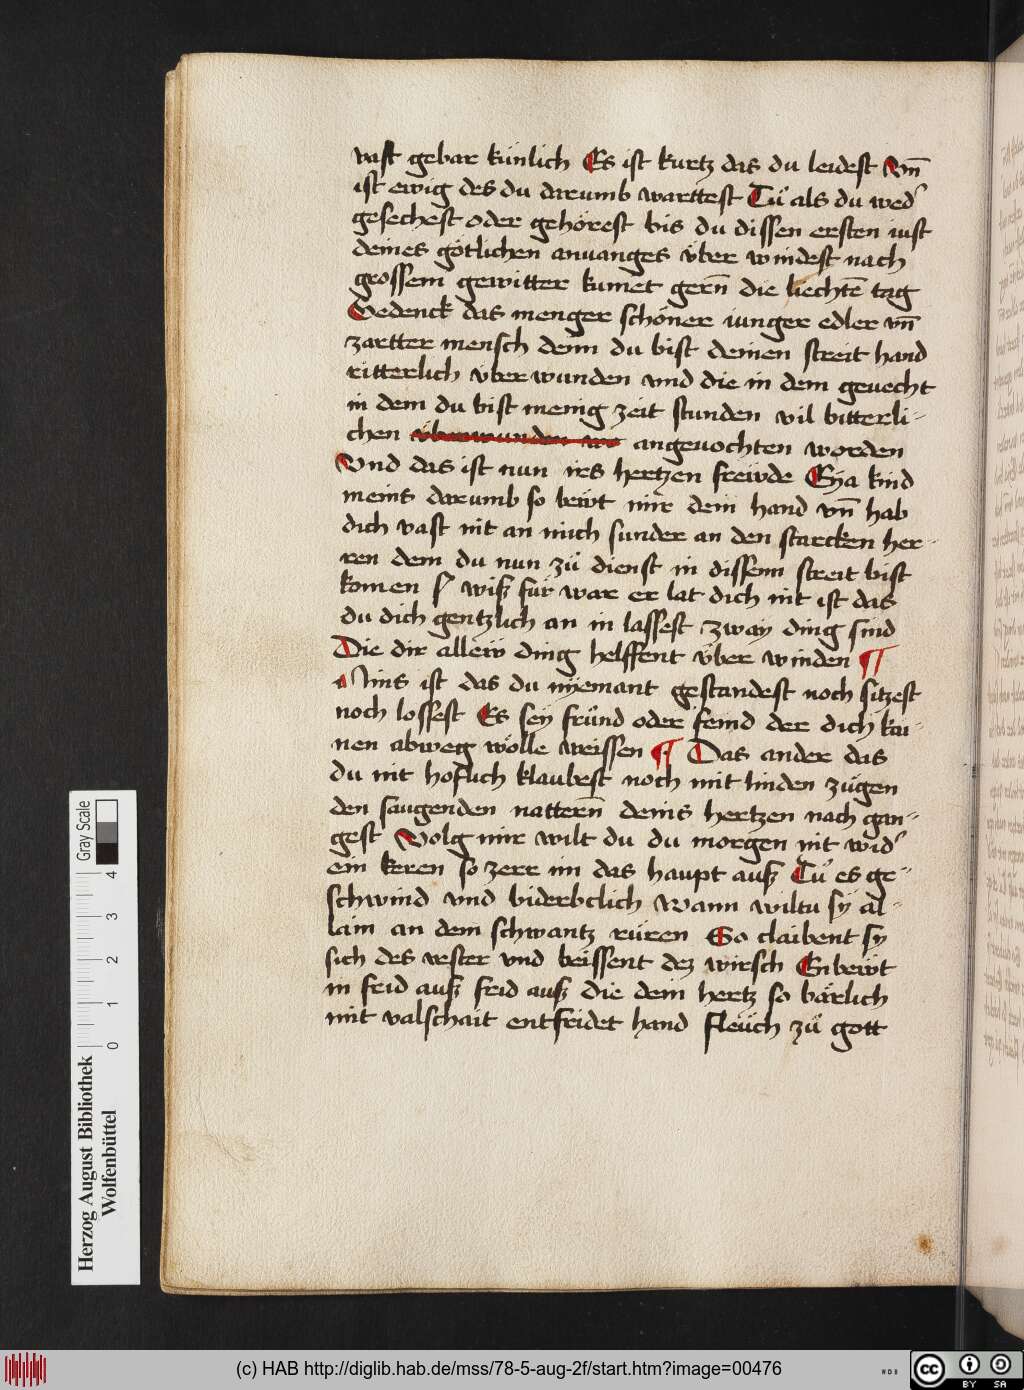 vast gebar kůnlich Es ist kurtz das du leidest Vn̄
ist ewig des du darumb warttest Tů als du wed'
gesechest oder gehörest bis du dissen ersten iust
deines götlichen anuanges über windest nach
grossem gewitter kumet gern̄ die liechtē tag
Gedenck das menger schöner iunger edler vn̄
zartter mensch denn du bist deinen streit hand
ritterlich über wunden vnd die in dem geuecht
in dem du bist menig zeit stunden vil bitterli-
chen überwunden wo angeuochten worden
Vnd das ist nun irs hertzen freẅde Eya kind
meins darumb so beüt mir dein hand vn̄ hab
dich vast nit an mich sunder an den starcken her-
ren dem du nun zů dienst in dissem streit bist
komen wiß für war er lat dich nit ist das
du dich gentzlich an in lassest zway ding sind
Die dir alleẅ ding helffent über winden ¶
Ains ist das du nyemant gestandest noch sitzest
noch lossest Es sey fründ oder feind der dich kü-
nen abweg wölle weissen ¶ Das ander das
du nit hoflich klaubest noch mit linden zügen
den saugenden nattern̄ deins hertzen nach gan-
gest Volg mir wilt du du morgen nit wid'
ein keren so zerr im das haupt auß Tů es ge-
schwind vnd biderbclich Wann wiltu sÿ al-
lain an dem schwantz rüren So claibent sy
sich des vester vnd beissent dez wirsch Enbeẅt
in frid auß frid auß die dem hertz so bärlich
mit valschait entfridet hand fleüch zů gott
Gray Scale
4
3
2
1
0
Herzog August Bibliothek
Wolfenbüttel
(c) HAB http://diglib.hab.de/mss/78-5-aug-2f/start.htm?image=00476
WDB
cc
BY SA